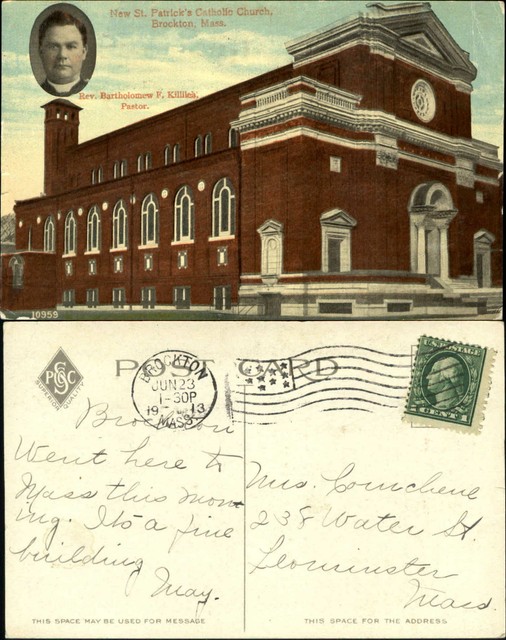 New St. Patrick's Catholic Church,
Brockton, Mass.
Rev. Bartholomew F. Killilea,
Pastor.
10959
POST CARD
SUPERIOR QUALITY
BROCKTON
JUN 23
1-30P
1913
MASS.
Brockton
Went here to
Mass this morn-
ing. Its a fine
building
May.
Mrs.
238 Water St.
Leominster
Mass.
THIS SPACE MAY BE USED FOR MESSAGE
THIS SPACE FOR THE ADDRESS